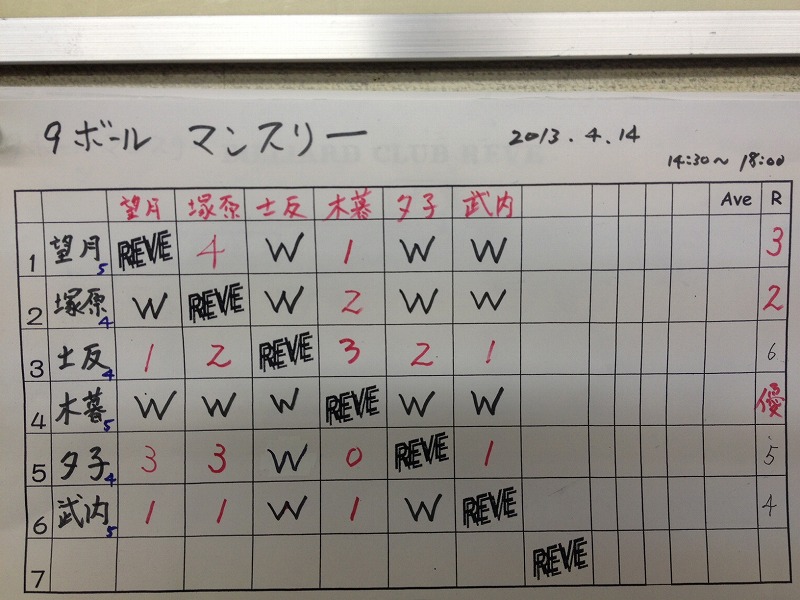 9ボール マンスリー 2013.4.14
14:30〜18:00
望月 塚原 士反 木暮 夕子 武内 Ave R
1 望月 5 REVE 4 W 1 W W 3
2 塚原 4 W REVE W 2 W W 2
3 士反 4 1 2 REVE 3 2 1 6
4 木暮 5 W W W REVE W W 優
5 夕子 4 3 3 W 0 REVE 1 5
6 武内 5 1 1 W 1 W REVE 4
7 REVE